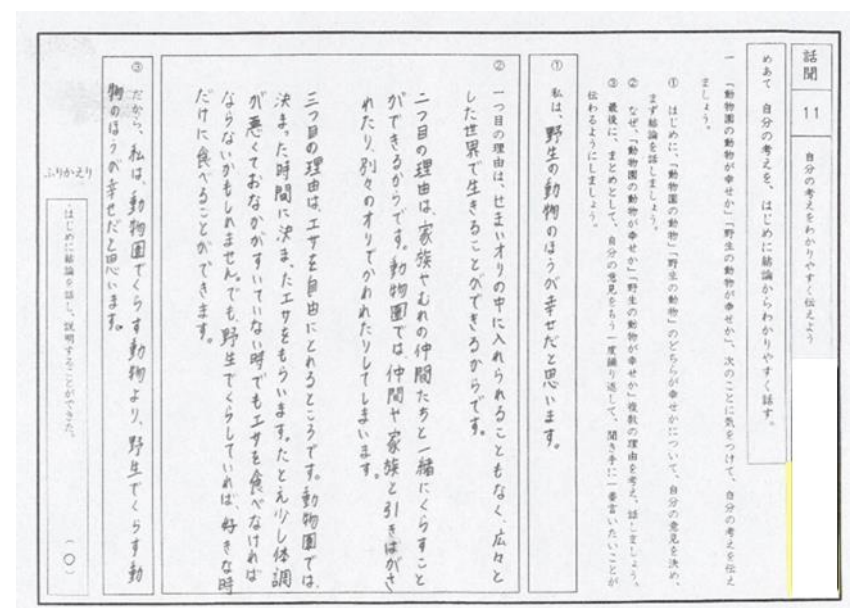 話聞
11
自分の考えをわかりやすく伝えよう
めあて 自分の考えを、はじめに結論からわかりやすく話す。
一 「動物園の動物が幸せか」「野生の動物が幸せか」、次のことに気をつけて、自分の考えを伝え
ましょう。
① はじめに、「動物園の動物」「野生の動物」のどちらが幸せかについて、自分の意見を決め、
まず結論を話しましょう。
② なぜ、「動物園の動物が幸せか」「野生の動物が幸せか」複数の理由を考え、話しましょう。
③ 最後に、まとめとして、自分の意見をもう一度繰り返して、聞き手に一番言いたいことが
伝わるようにしましょう。
① 私は、野生の動物のほうが幸せだと思います。
② 一つ目の理由は、せまいオリの中に入れられることもなく、広々と
した世界で生きることができるからです。
二つ目の理由は、家族やむれの仲間たちと一緒にくらすこと
ができるからです。動物園では、仲間や家族と引きはがさ
れたり、別々のオリでかわれたりしてしまいます。
三つ目の理由は、エサを自由にとれるところです。動物園では、
決まった時間に決まったエサをもらいます。たとえ少し体調
が悪くておなかがすいていない時でもエサを食べなければ
ならないかもしれません。でも、野生でくらしていれば、好きな時
だけに食べることができます。
③ だから、私は、動物園でくらす動物より、野生でくらす動
物のほうが幸せだと思います。
ふりかえり
・はじめに結論を話し、説明することができた。
(○)